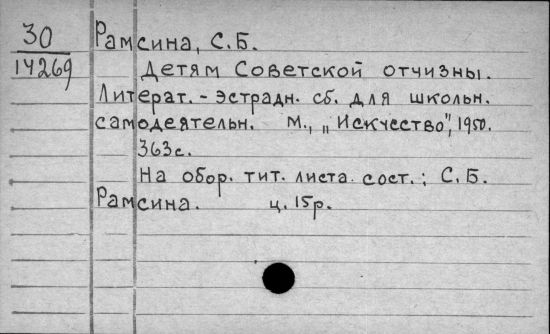 30
14269
Рамсина, С.Б.
Детям Советской отчизны.
Литерат. - Эстрадн. сб. для школьн.
самодеятельн. М., „Искусство", 1950.
363с.
На обор. тит. листа сост.: С.Б.
Рамсина. ц. 15р.